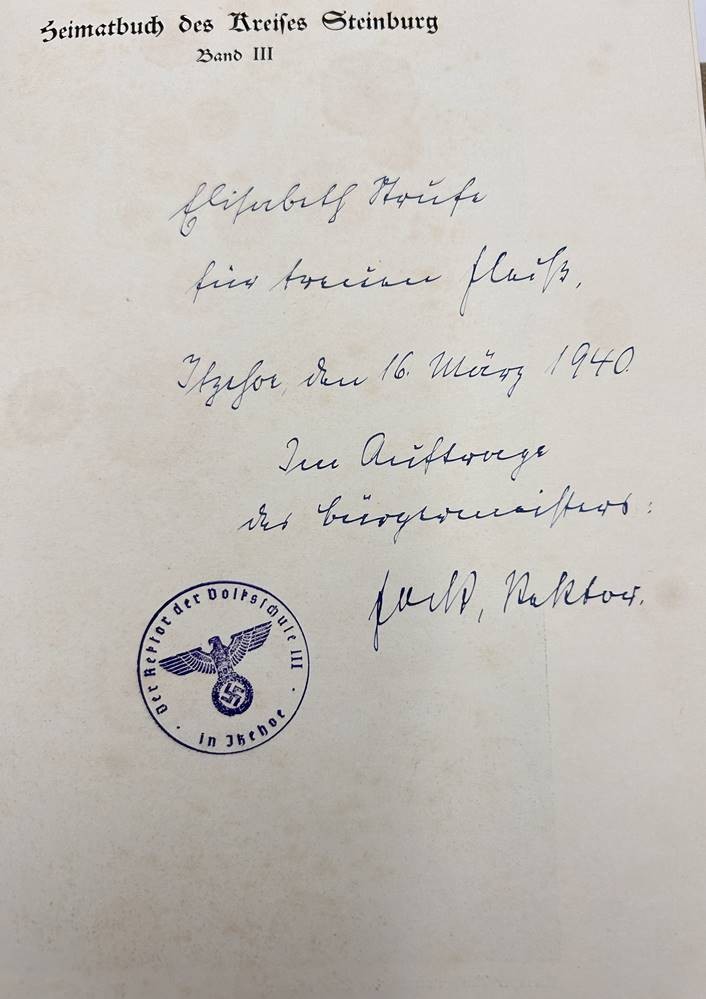 Heimatbuch des Kreises Steinburg
Band III
Elisabeth Strufe
für treuen Fleiß.
Itzehoe, den 16. März 1940.
Im Auftrage
des Bürgermeisters:
Rektor.
Der Rektor der Volksschule III
in Itzehoe